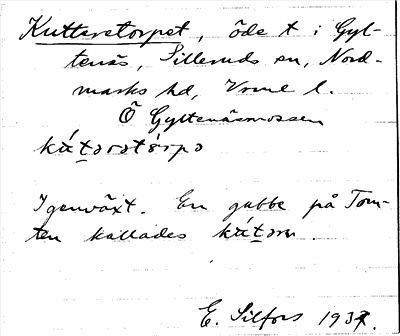 Kuttaretorpet, öde t i Gyl-
tenäs, Silleruds sn, Nord-
marks hd, Vrml l.
Ö Gyltenäsmossen
kát̲ərətórpə
Igenväxt. En gubbe på Tom-
ten kallades kát̲ərn.
E. Silfors 1937.